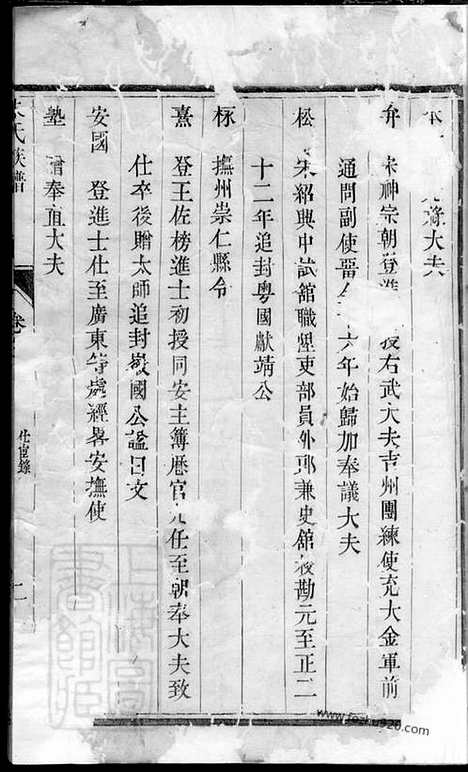 大夫
弁 宋神宗朝登進 授右武大夫吉州團練使充大金軍前
通問副使 六年始歸加奉議大夫
松 宋紹興中試舘職陞吏部員外郎兼史舘校勘元至正二
十二年追封粵國獻靖公
㮋 撫州崇仁縣令
熹 登王佐榜進士初授同安主簿歷官九任至朝奉大夫致
仕卒後贈太師追封徽國公謚曰文
安國 登進士仕至廣東等處經畧安撫使
塾 贈奉直大夫
氏族譜
卷
仕宦錄
二